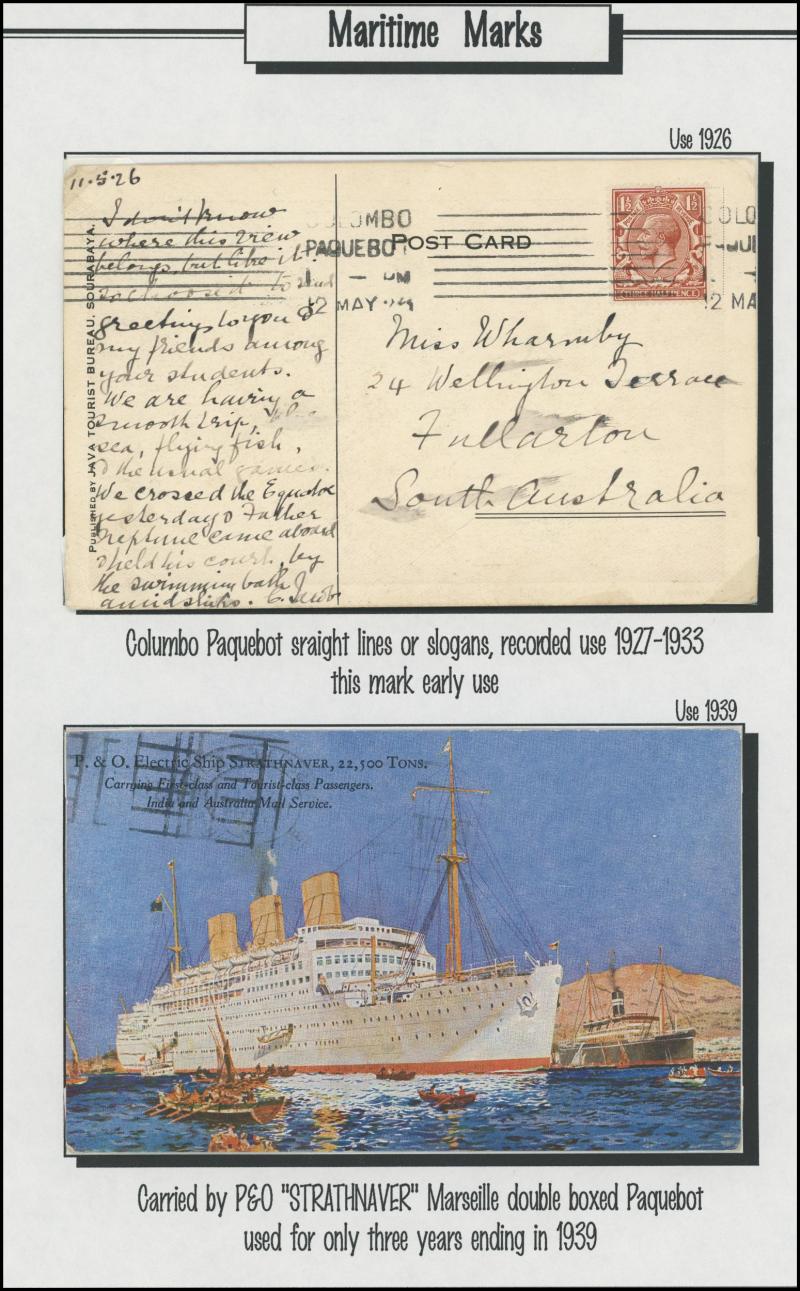 Maritime Marks
Use 1926
11·5·26
I don't know
where this view
belongs, but like it.
so choose it to send
greeting to you &
my friends among
your students.
We are having a
smooth trip,
sea, flying fish,
& the usual games.
We crossed the Equator
yesterday & Father
Neptune came aboard
& held his court, by
the swimming bath
PUBLISHED BY JAVA TOURIST BUREAU, SOURABAYA.
COLOMBO
PAQUEBOT
PM
12 MAY
POST CARD
1½ 1½
THREE HALFPENCE
COLO
PAQUE
12 MA
Miss Wharmby
24 Wellington Terrace
Fullarton
South Australia
Columbo Paquebot sraight lines or slogans, recorded use 1927-1933
this mark early use
Use 1939
P. & O. Electric Ship STRATHNAVER, 22,500 TONS.
Carrying First-class and Tourist-class Passengers.
India and Australia Mail Service.
Carried by P&O "STRATHNAVER" Marseille double boxed Paquebot
used for only three years ending in 1939